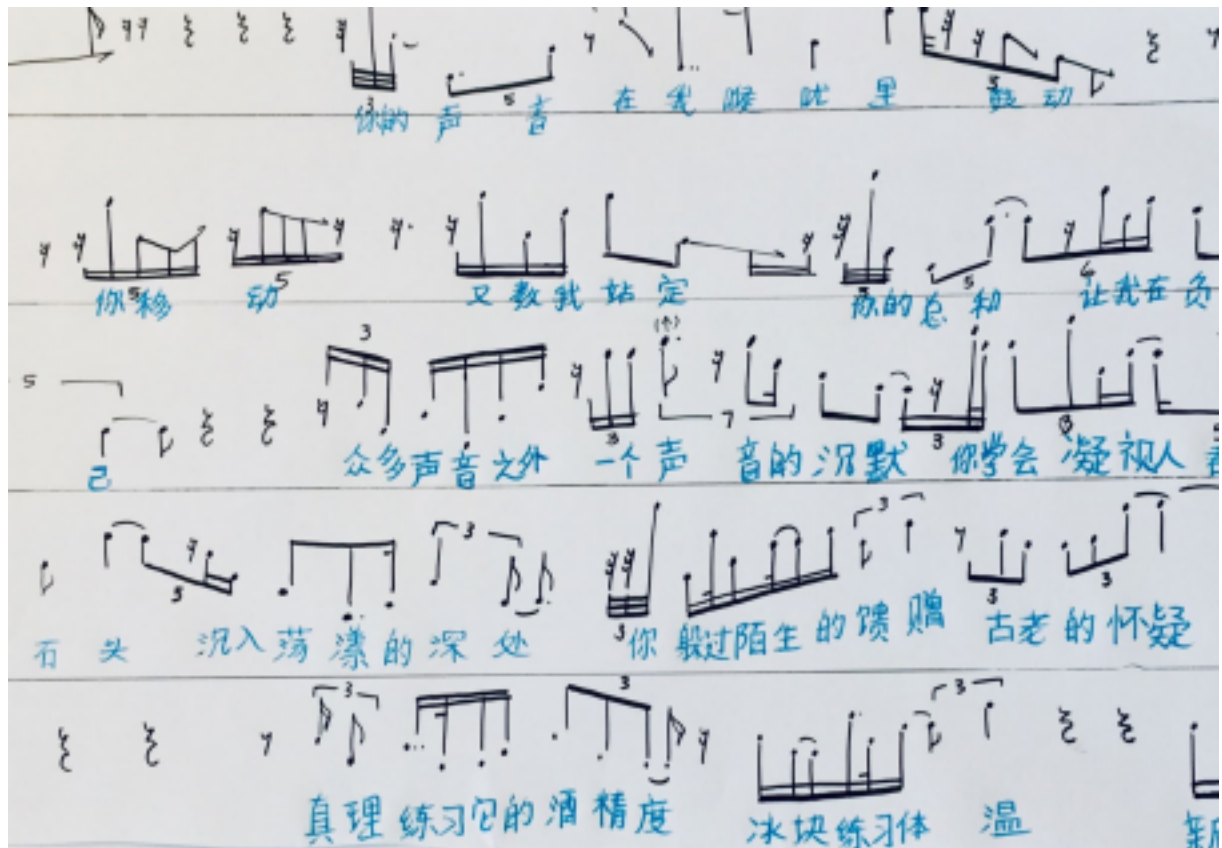 你的声音在我喉咙里鼓动
你移动 又数我站定 你的总和 让我在负
己 众多声音之外 一个声音的沉默 你学会凝视人
石头 沉入荡漾的深处 你躲过陌生的馈赠 古老的怀疑
真理练习它的酒精度 冰块练习体温